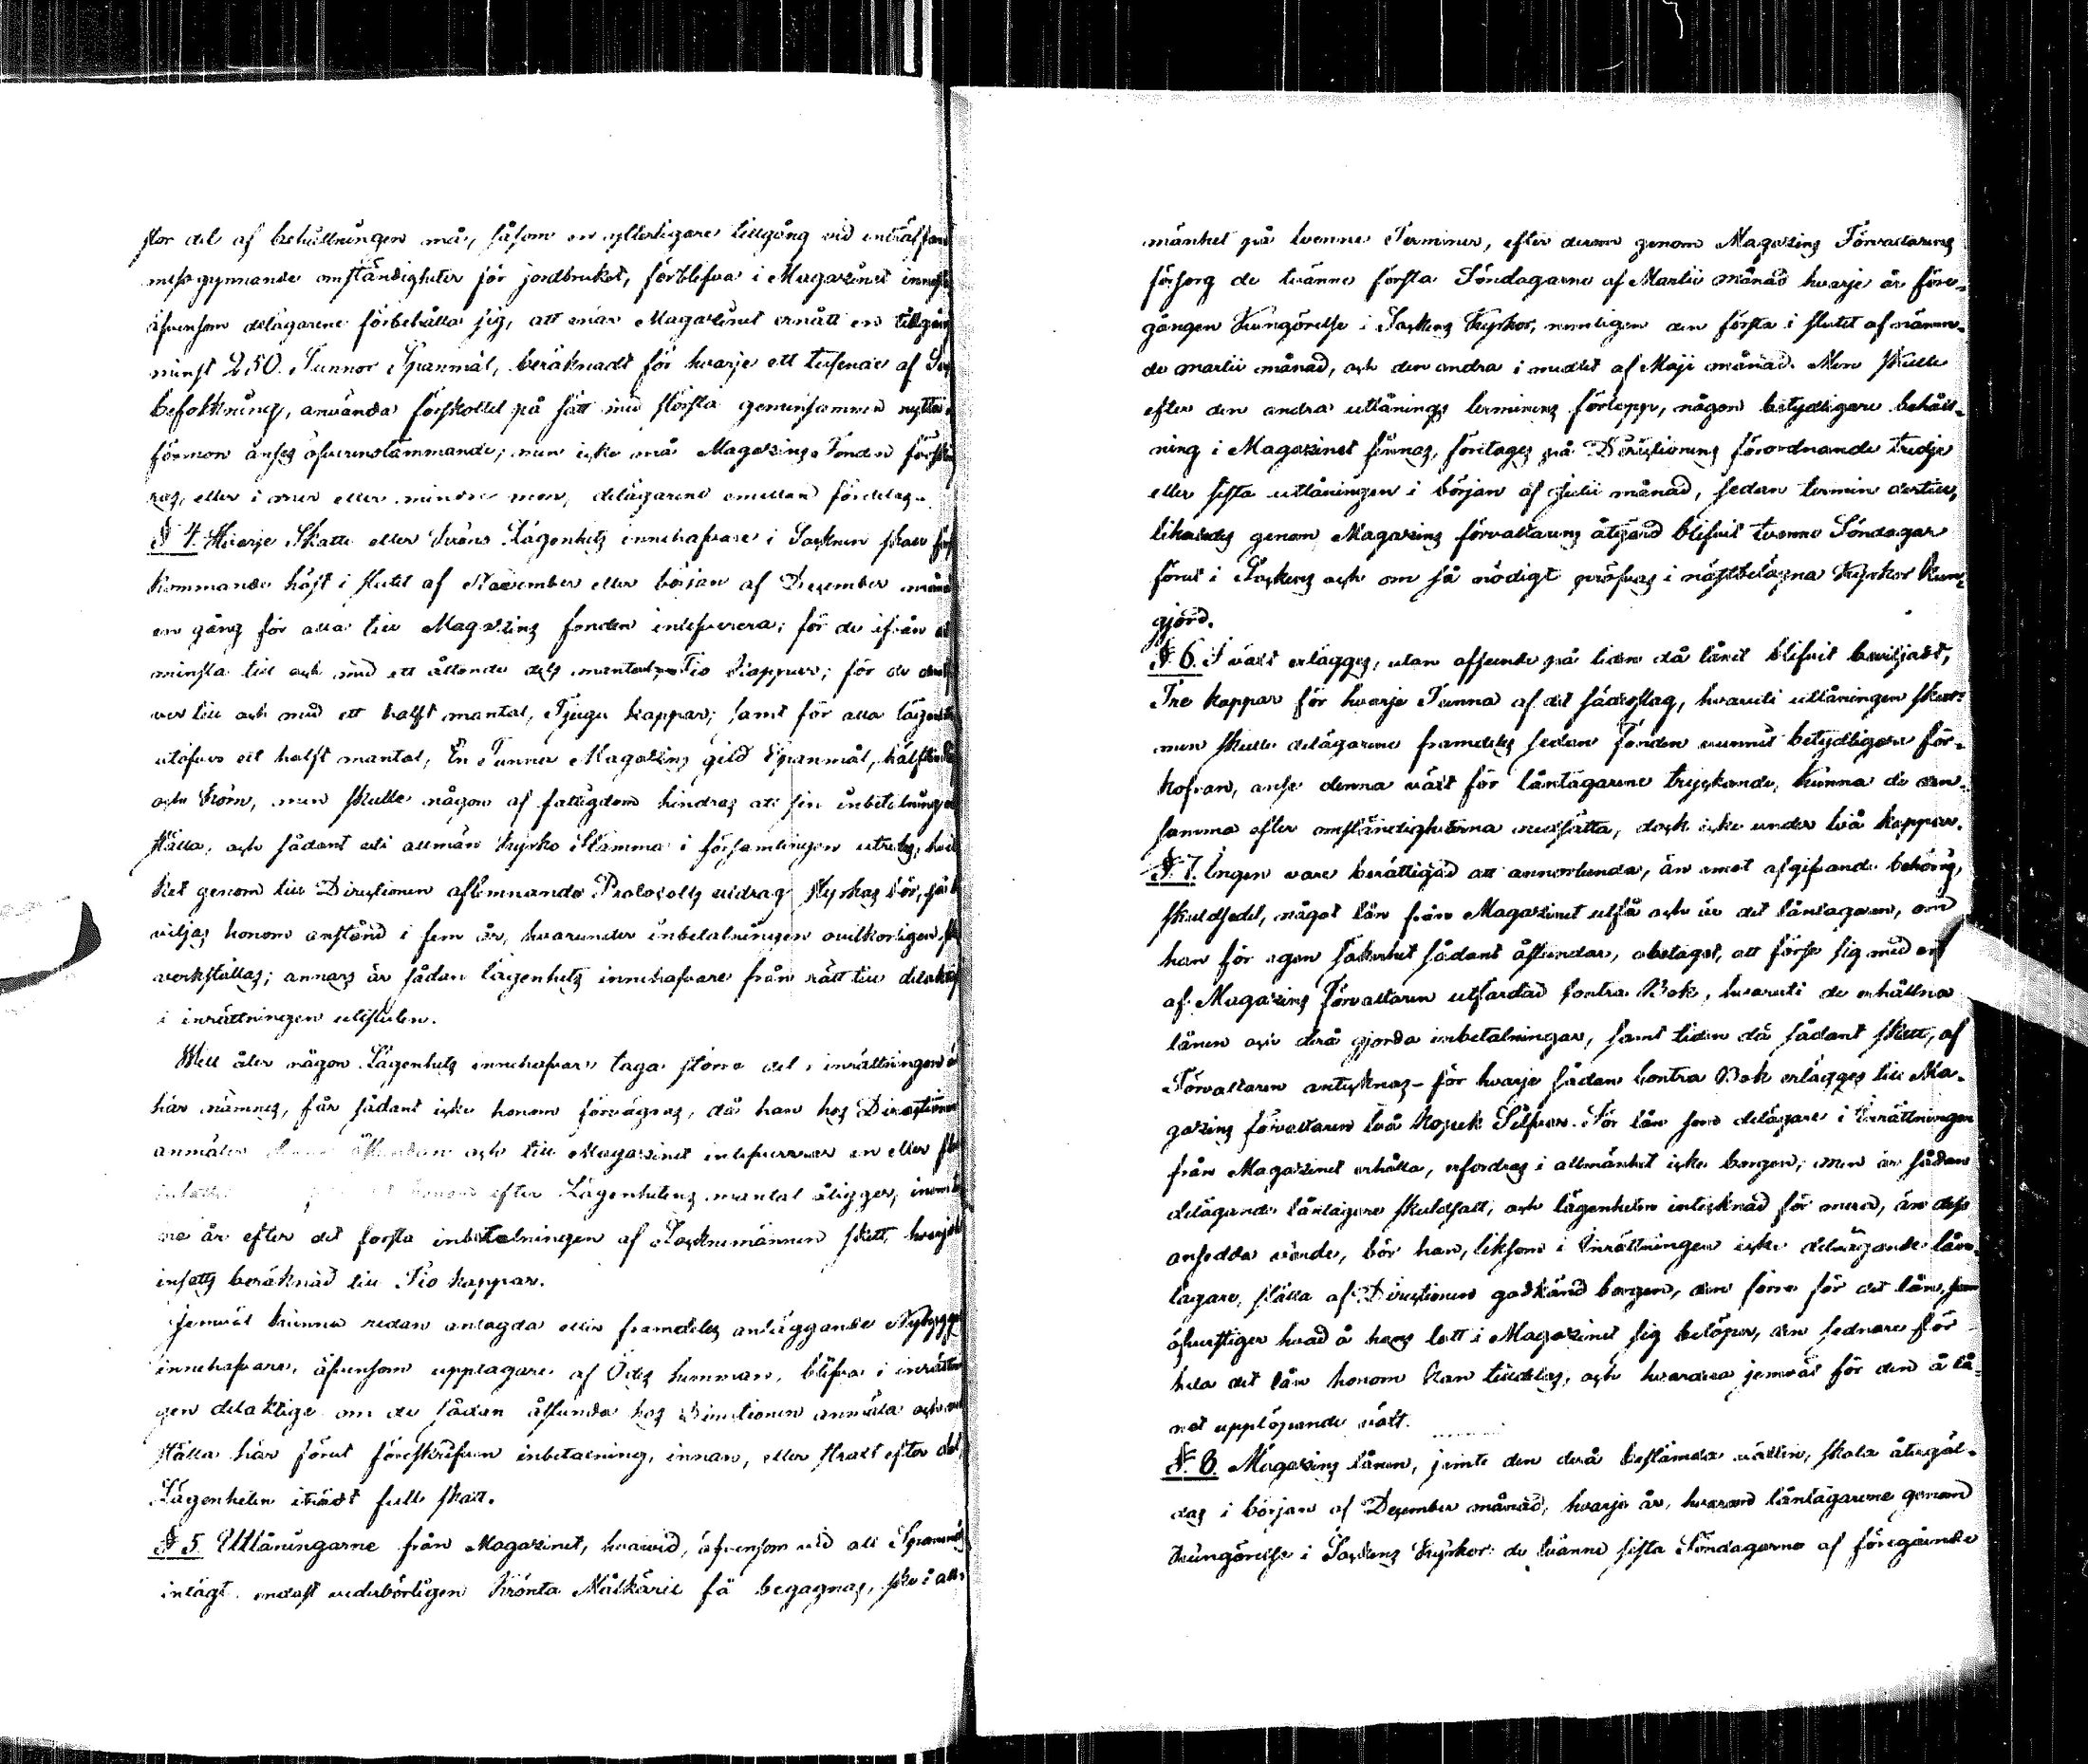 stor del af behållningen må, såsom en ytterligare tillgång vid inträffan
missgynnande omständigheter för jordbruket, förblifva i Magazinet inne
äfvensom delägarene förbehålla sig, att när Magazinet ernått en tillgång
minst 250. Tunnor Spanmål, beräknadt för hvarje ett tusende af
befolkning, använda förskottet på sätt med största gemensamma nytta
förmon anses öfverenstämmande; men icke må Magazins Fonden
ras, eller i mer eller mindre mon, delägarene emellan fördelas.
§ 4. Hvarje Skatte eller Krono Lägenhets innehafvare i Socknen skall
kommande höst i slutet af November eller början af December
en gång för alla till Magazins fonden inlefverera; för de ifrån
minsta till och med ett åttonde dels mantal Tio Kappar; för de
ver till och med ett halft mantal, Tjugu kappar; samt för alla
utöfver ett halft mantal, En Tunna Magazins gild Spanmål,
och Korn, men skulle någon af fattigdom hindras att sin inbetalning
ställa, och sådant vid allmän Kyrko Stämma i församlingen utredes,
ket genom till Directionen aflemnande Protocolls utdrag styrkas bör,
viljas honom anstånd i fem år, hvarunder inbetalningen ovilkorligen
verkställas; annars är sådan lägenhets innehafvare från rätt till
i inrättningen utesluten.
Will åter någon Lägenhets innehafvare taga större del i inrättningen
här nämnes, får sådant icke honom förvägras, då han hos Directionen
anmäler åstundan och till Magazinet inlefvererar en eller
honom efter Lägenhetens mantal åligger,
ne år efter det första inbetalningen af Socknemännen skett,
insatts beräknad till Tio kappar.
Jemväl kunna redan anlagda eller framdeles anläggande
innehafvare, äfvensom upptagare af Ödes hemman, blifva i
gen delaktige om de sådan åstundan hos Directionen anmäla och
ställa här förut föreskrifven inbetalning, innan, eller strax efter det
Lägenheten iträdt full skatt.
§ 5. Utlåningarne från Magazinet, hvarvid, äfvensom vid all
intägt endast vederbörligen Krönta Målkäril få begagnas, ske i all-
mänhet på tvenne Terminer, efter derom genom Magazins Förvaltarens
försorg de tvänne första Söndagarne af Martii månad hvarje år före-
gången Kungörelse i Sockens Kyrkor, nemligen den första i slutet af nämn-
de martii månad, och den andra i medlet af Maji månad. Men skulle
efter den andra utlånings terminens förlopp, någon betydligare behåll-
ning i Magazinet finnas, företages på Directionens förordnande tredje
eller sista utlåningen i början af Julii månad, sedan termin dertill,
likaledes genom Magazins förvaltarens åtgärd blifvit tvenne Söndagar
förut i Sockens och om så nödigt pröfvas i nästbelägna Kyrkor kun-
gjord.
§. 6. I växt erlägges, utan afseende på tiden då lånet blifvit beviljadt,
Tre kappar för hvarje Tunna af det sädesslag, hvaruti utlåningen skett:
men skulle delägarene framdeles sedan fonden vunnit betydligare för-
kofran, anse denna växt för låntagarene tryckande, kunna de den-
samma efter omständigheterna nedsätta, dock icke under två kappar.
§. 7. Ingen vare berättigad att annorlunda, än emot afgifvande behörig
skuldsedel, något lån från Magazinet utfå och är det låntagaren, om
han för egen säkerhet sådant åstundar, obetaget, att förse sig med en
af Magazins Förvaltaren utfärdad Contra Bok, hvaruti de erhållna
lånen och derå gjorda inbetalningar, samt tiden då sådant skett, af
Förvaltaren antecknas - för hvarje sådan Contra Bok erlägges till Ma-
gazins förvaltaren två Kopek Silfver. För lån som delägare i Inrättningen
från Magazinet erhålla, erfordras i allmänhet icke borgen; men är sådan
delägande låntagare skuldsatt, och lägenheten intecknad för mera, än dess
ansedda värde, bör han, liksom i Inrättningen icke delvägande lån-
tagare, ställa af Directionen godkänd borgen, den förra för det lån, som
öfverstiger hvad å hans lott i Magazinet sig belöper, den sednare för
hela det lån honom kan tilldelas, och hvardera jemväl för den å lå-
net upplöpande växt.
§. 8. Magazins lånen, jemte den derå bestämda växten, skola återgäl-
das i början af December månad, hvarje år, hvarom låntagarene genom
Kungörelse i Sockens Kyrkor de tvänne sista Söndagarne af föregående